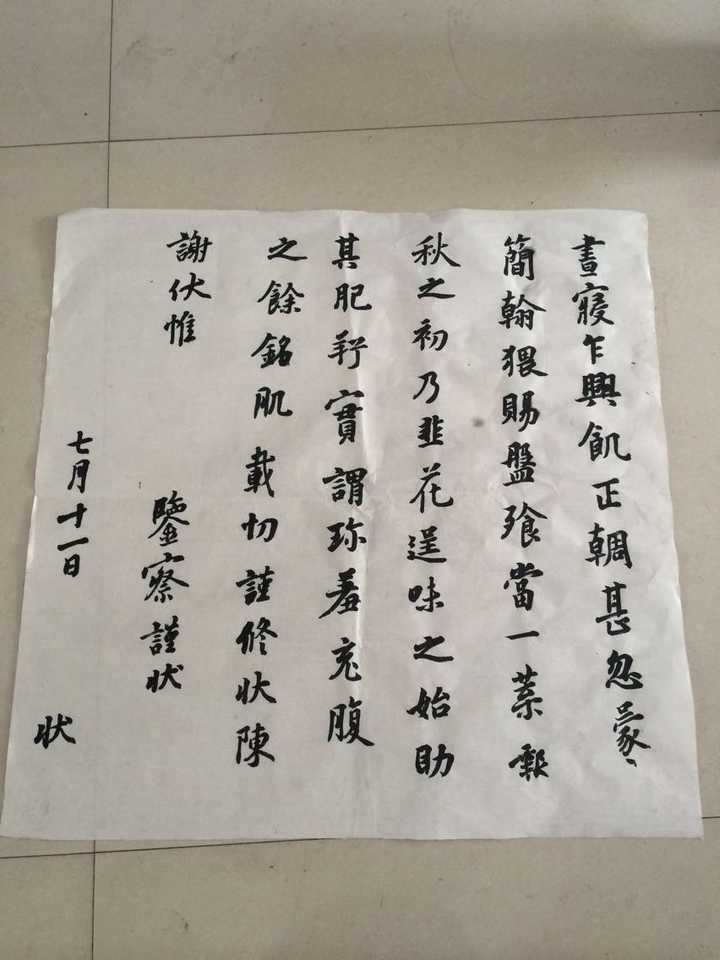 晝寢乍興飢正輖甚忽蒙
簡翰猥賜盤飧當一葉報
秋之初乃韭花逞味之始助
其肥羜實謂珍羞充腹
之餘銘肌載切謹修狀陳
謝伏惟
鑒察謹狀
七月十一日 狀